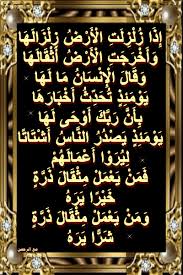 إِذَا زُلْزِلَتِ الْأَرْضُ زِلْزَالَهَا
وَأَخْرَجَتِ الْأَرْضُ أَثْقَالَهَا
وَقَالَ الْإِنْسَانُ مَا لَهَا
يَوْمَئِذٍ تُحَدِّثُ أَخْبَارَهَا
بِأَنَّ رَبَّكَ أَوْحَى لَهَا
يَوْمَئِذٍ يَصْدُرُ النَّاسُ أَشْتَاتًا
لِيُرَوْا أَعْمَالَهُمْ
فَمَن يَعْمَلْ مِثْقَالَ ذَرَّةٍ
خَيْرًا يَرَهُ
وَمَنْ يَعْمَلْ مِثْقَالَ ذَرَّةٍ
شَرًّا يَرَهُ